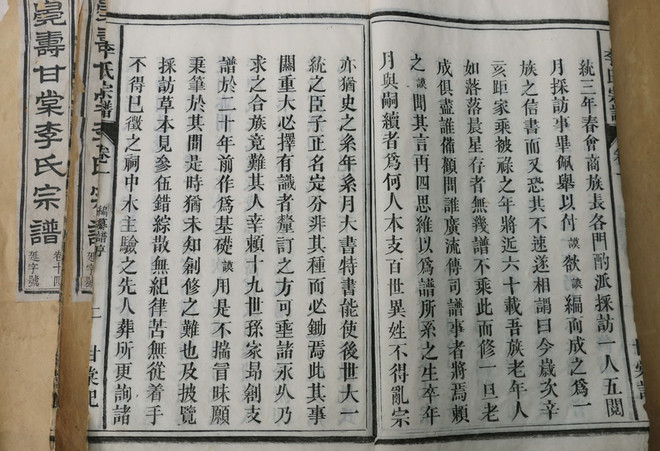 統三年春會商族長各門酌派採訪一人五閱
月採訪事畢佩舉以付談欲談編而成之爲一
族之信書而又恐其不速遂相謂曰今歲次辛
亥距家乘被祿之年將近六十載吾族老年人
如落落晨星存者無幾譜不乘此而修一旦老
成俱盡誰備顧問誰廣流傳司譜事者將焉賴
之談聞其言再四思維以爲譜所系之生卒年
月與嗣續者爲何人本支百世異姓不得亂宗
亦猶史之系年系月大書特書能使後世大一
統之臣子正名定分非其種而必鋤焉此其事
關重大必擇有識者釐訂之方可垂諸永久乃
求之合族竟難其人幸賴十九世孫家昴創支
譜於二十年前作爲基礎談用是不揣冒昧願
秉筆於其間是時猶未知創修之難也及披覽
採訪草本見參伍錯綜散無紀律苦無從着手
不得已徵之祠中木主驗之先人葬所更詢諸
李氏宗譜
卷一
編纂譜序
二
甘棠記
壽甘棠李氏宗譜
卷十四
延字號